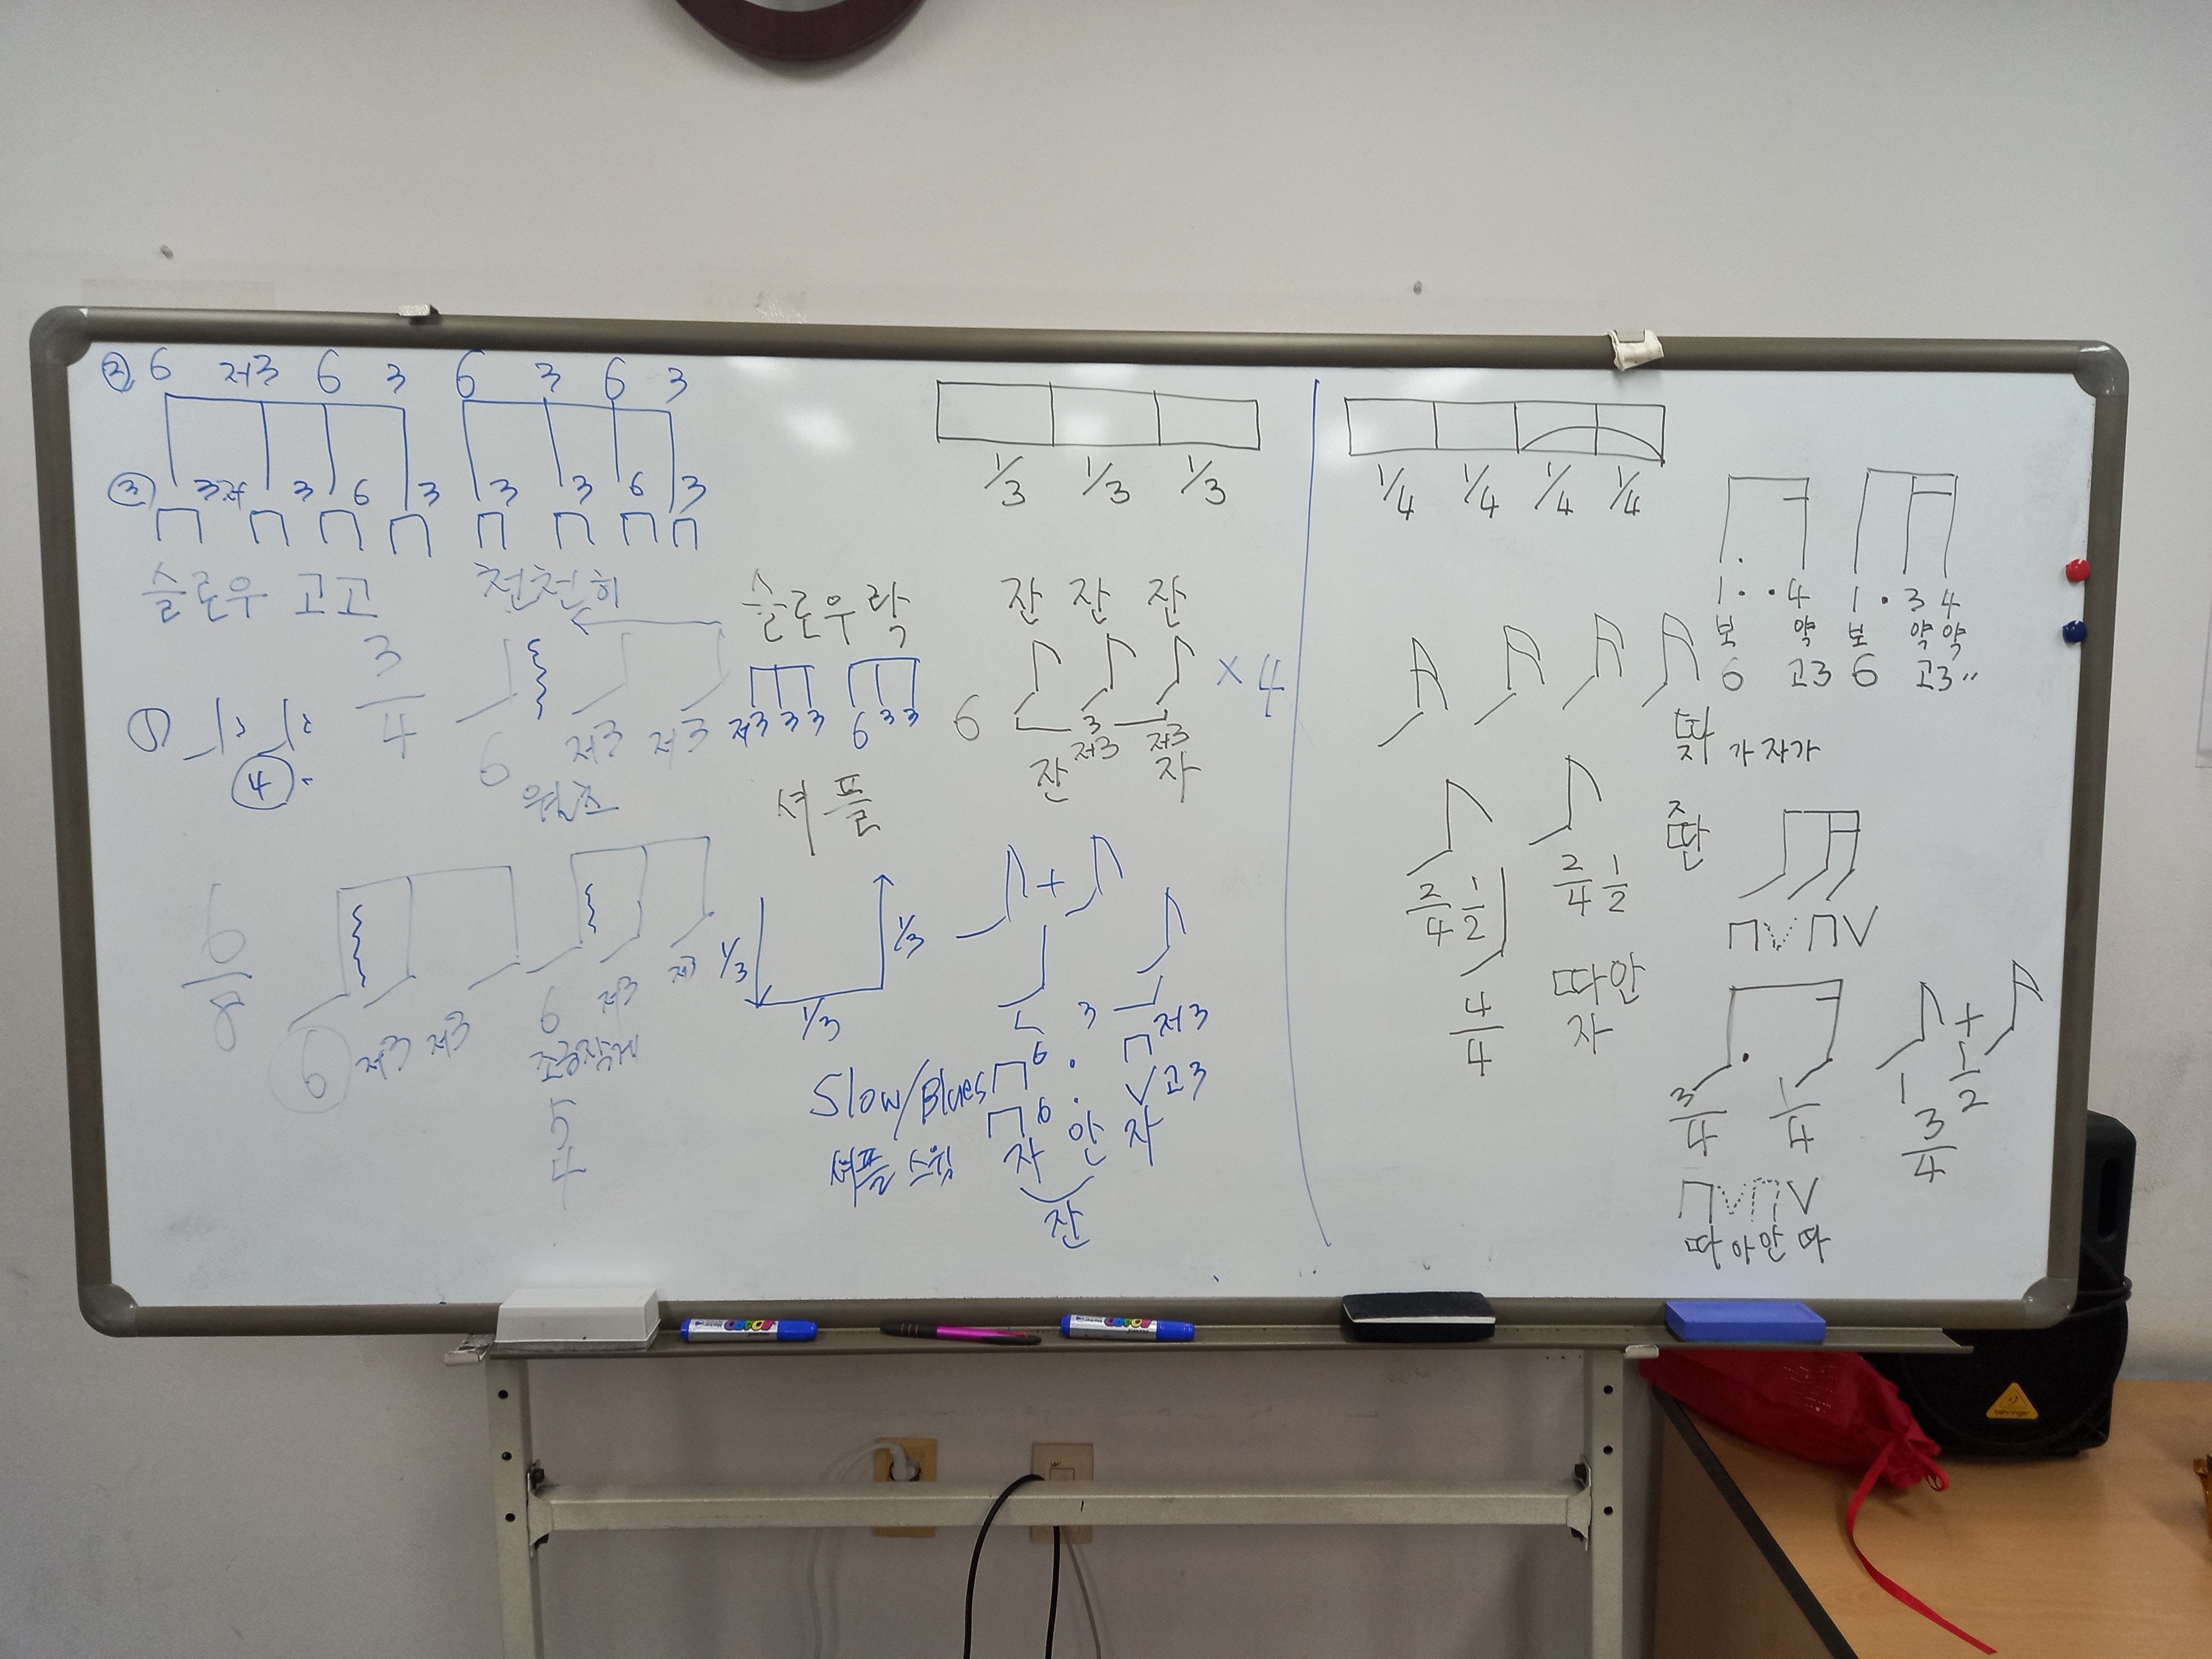 ② 6 저3 6 3 6 3 6 3
③ 3저 3 6 3 3 3 6 3
슬로우 고고 천천히
3/4
① 4
6 저3 저3
왈츠
6/8
6 저3 저3 6 저3 저3
조금작게
5
4
1/3 1/3 1/3
슬로우락 잔 잔 잔
× 4
저3 3 3 6 3 3
6 3 저3 저3
잔 자
셔플
+
1/3 1/3 1/3
3 저3
Slow/Blues 6 · 고3
6 ·
셔플 스윙 자 안 자
잔
1/4 1/4 1/4 1/4
1 · · 4 1 · 3 4
보 약 보 약 약
6 고3 6 고3 "
가 자가
2/4 1/2 2/4 1/2
딴
4/4
따안
자
+
3/4 1/4 1 1/2
3/4
따 아 안 따
behringer